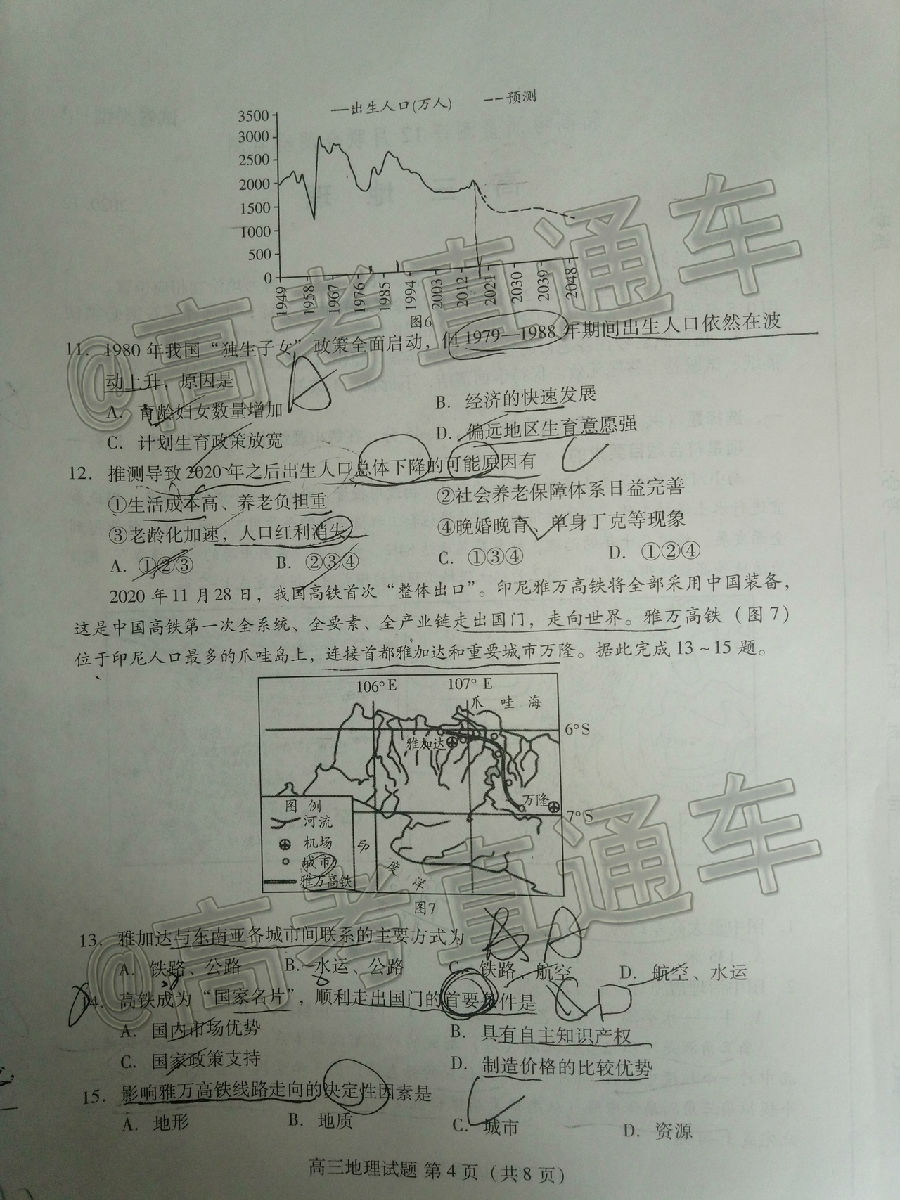 —出生人口(万人) --预测
3500
3000
2500
2000
1500
1000
500
0
1949
1958
1967
1976
1985
1994
2003
2012
2021
2030
2039
2048
图6
11. 1980年我国“独生子女”政策全面启动，但1979—1988年期间出生人口依然在波
动上升，原因是
A. 育龄妇女数量增加 B. 经济的快速发展
C. 计划生育政策放宽 D. 偏远地区生育意愿强
12. 推测导致2020年之后出生人口总体下降的可能原因有
①生活成本高、养老负担重 ②社会养老保障体系日益完善
③老龄化加速，人口红利消失 ④晚婚晚育、单身丁克等现象
A. ①②③ B. ②③④ C. ①③④ D. ①②④
2020年11月28日，我国高铁首次“整体出口”。印尼雅万高铁将全部采用中国装备，
这是中国高铁第一次全系统、全要素、全产业链走出国门，走向世界。雅万高铁（图7）
位于印尼人口最多的爪哇岛上，连接首都雅加达和重要城市万隆。据此完成13~15题。
106°E 107°E
爪哇海
6°S
雅加达
万隆
7°S
图例
河流
机场
城市
雅万高铁
印度洋
图7
13. 雅加达与东南亚各城市间联系的主要方式为
A. 铁路、公路 B. 水运、公路 C. 铁路、航空 D. 航空、水运
14. 高铁成为“国家名片”，顺利走出国门的首要条件是
A. 国内市场优势 B. 具有自主知识产权
C. 国家政策支持 D. 制造价格的比较优势
15. 影响雅万高铁线路走向的决定性因素是
A. 地形 B. 地质 C. 城市 D. 资源
高三地理试题 第4页（共8页）
@高考直通车
@高考直通车